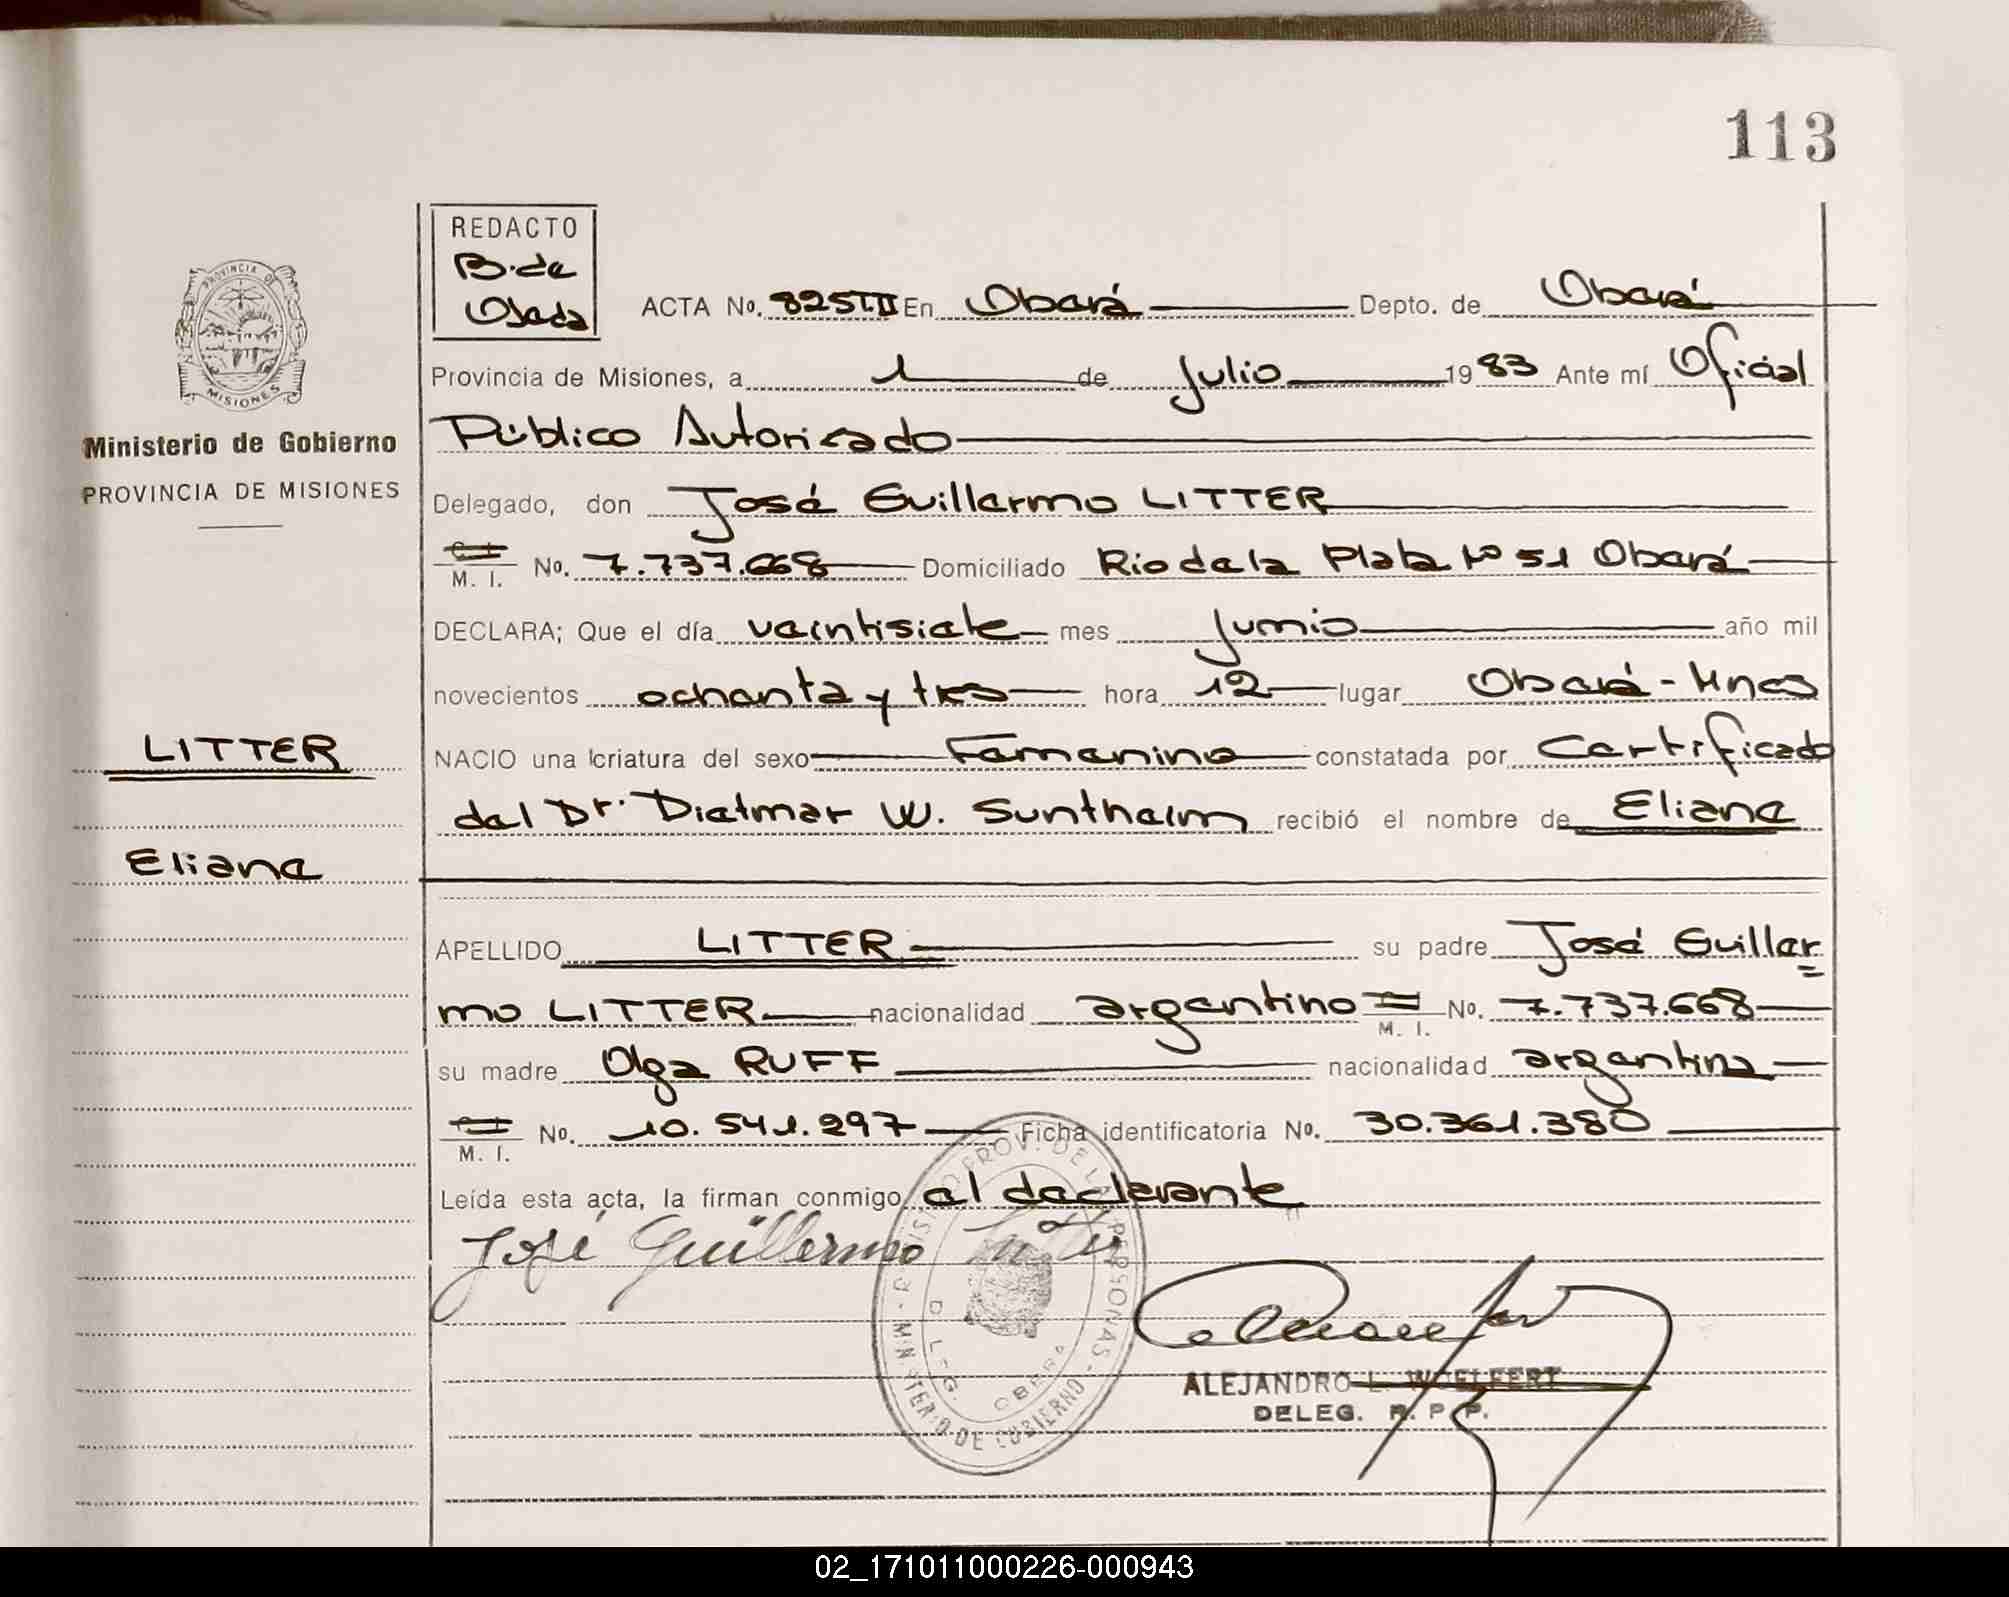 113
REDACTO
B. de
Ojeda
PROVINCIA DE
MISIONES
Ministerio de Gobierno
PROVINCIA DE MISIONES
ACTA No. 825 T.II En Oberá Depto. de Oberá
Provincia de Misiones, a 1 de Julio 1983 Ante mí Oficial
Público Autorizado
Delegado, don José Guillermo LITTER
M. I. No. 7.737.668 Domiciliado Rio de la Plata Nº 51 Oberá
DECLARA; Que el día veintisiete mes Junio año mil
novecientos ochenta y tres hora 12 lugar Oberá - Mnes
LITTER
NACIO una criatura del sexo Femenino constatada por Certificado
del Dr. Dietmar W. Suntheim recibió el nombre de Eliana
Eliana
APELLIDO LITTER su padre José Guiller
mo LITTER nacionalidad argentino M. I. No. 7.737.668
su madre Olga RUFF nacionalidad argentina
M. I. No. 10.541.297 Ficha identificatoria No. 30.361.380
Leída esta acta, la firman conmigo el declarante
José Guillermo Litter
PROV. DE LAS PERSONAS - MINISTERIO DE GOBIERNO
DELEG. OBERA
ALEJANDRO L. WOELFERT
DELEG. R. P. P.
02_171011000226-000943